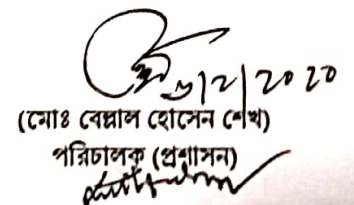 ৩/২/২০২০
(মোঃ বেল্লাল হোসেন শেখ)
পরিচালক (প্রশাসন)